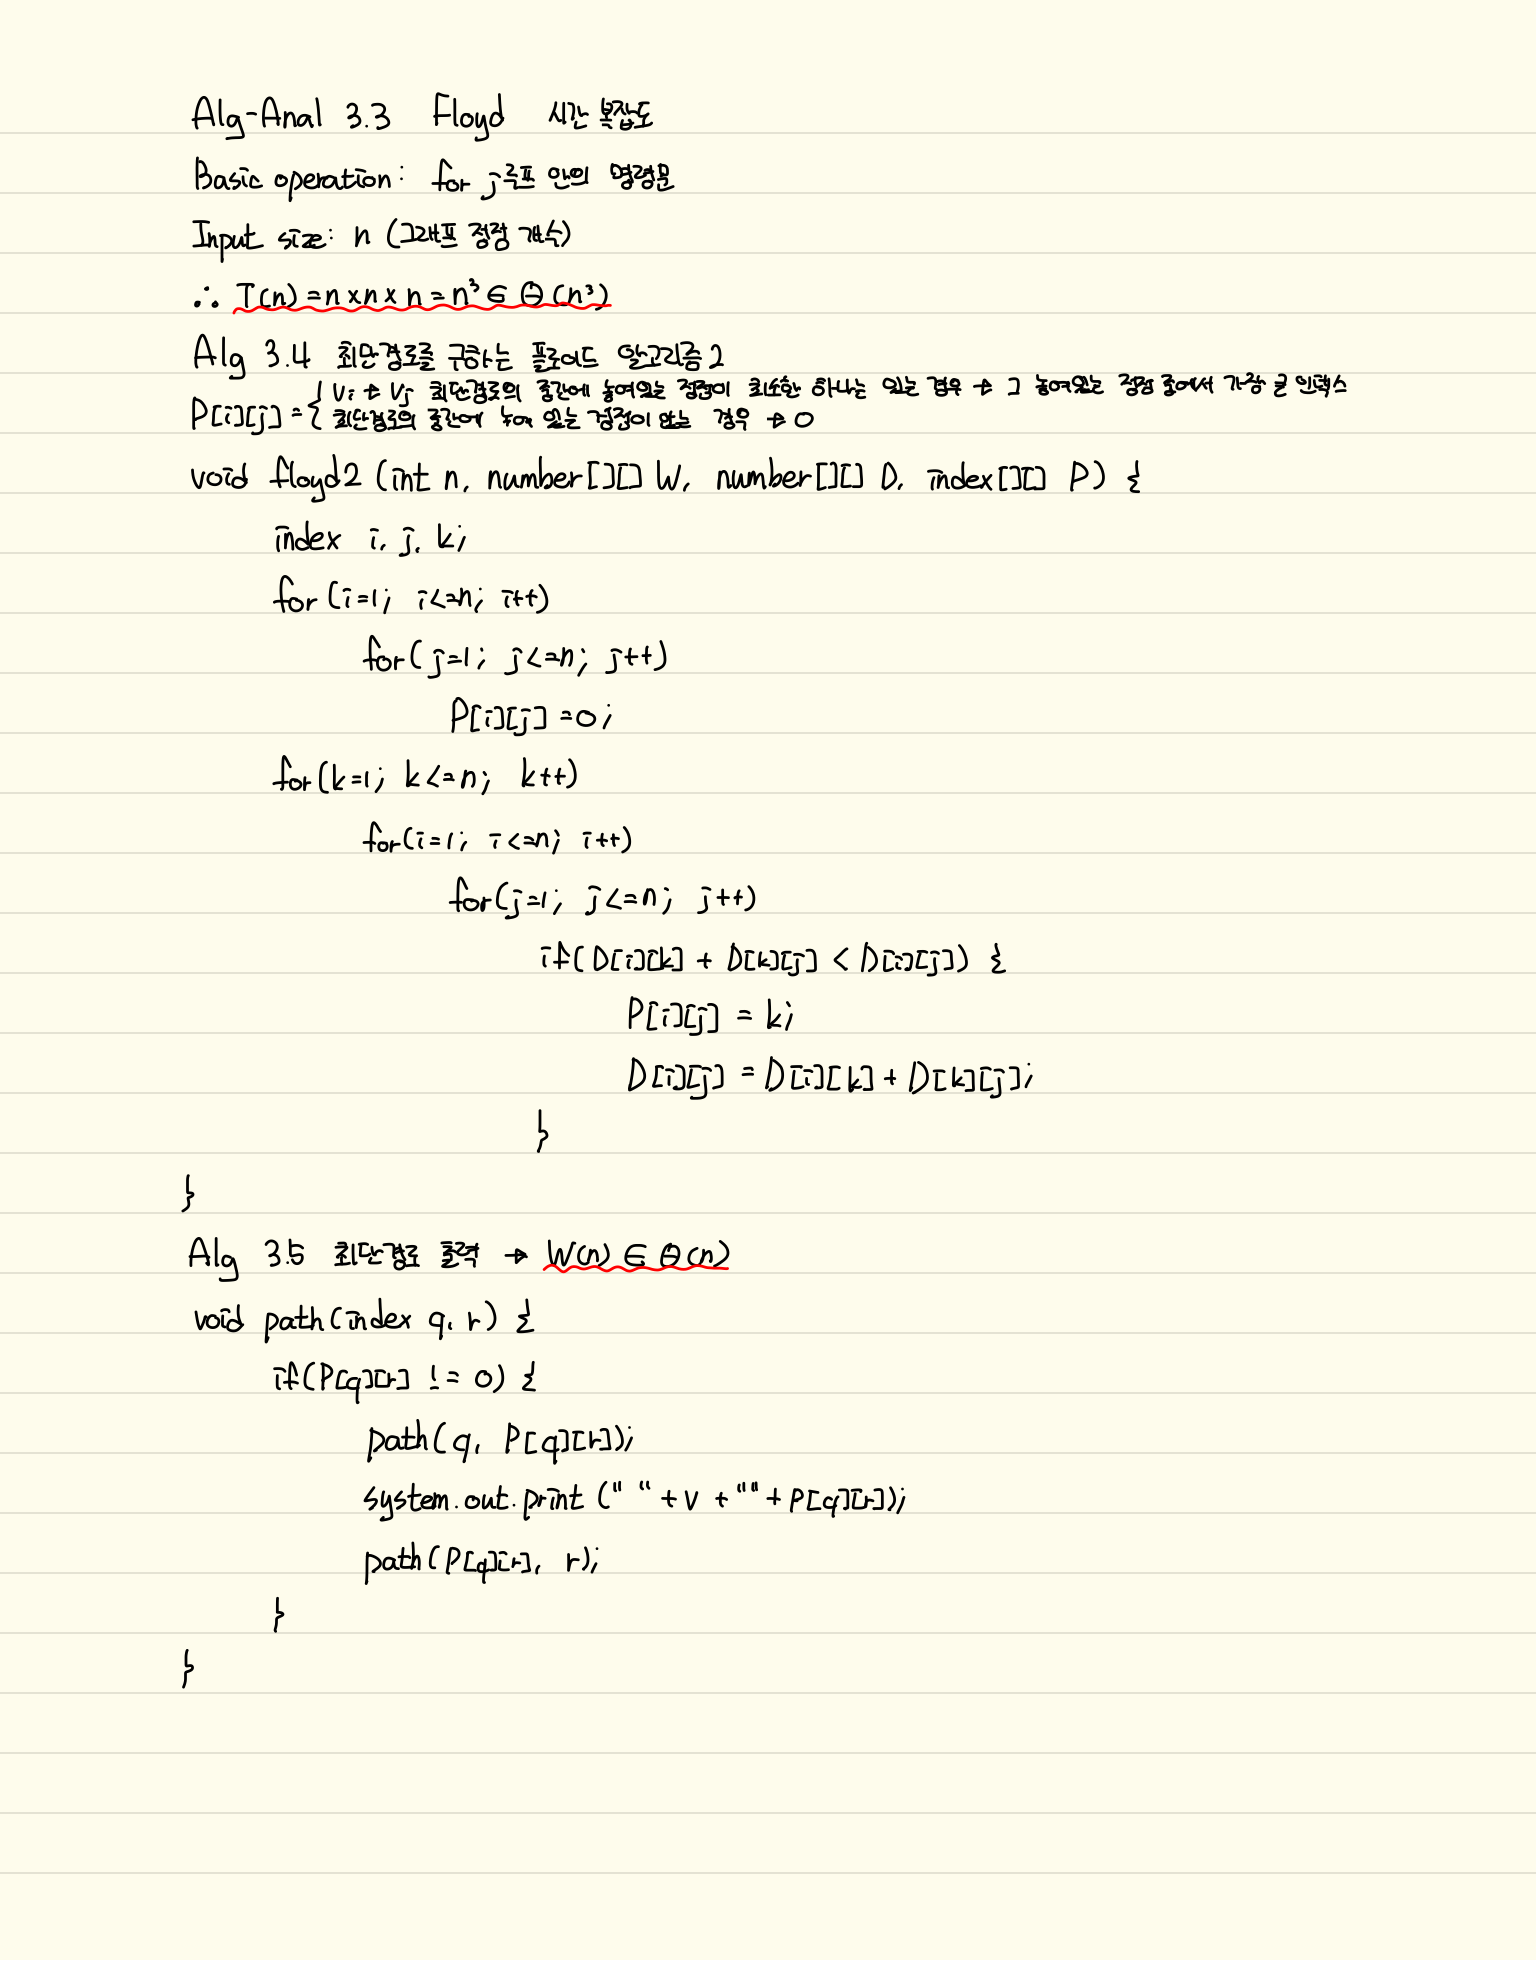 Alg-Anal 3.3 Floyd 시간 복잡도
Basic operation: for j루프 안의 명령문
Input size: n (그래프 정점 개수)
∴ T(n) = n × n × n = n³ ∈ Θ(n³)
Alg 3.4 최단경로를 구하는 플로이드 알고리즘 2
P[i][j] = { Vi → Vj 최단경로의 중간에 놓여있는 정점이 최소한 하나는 있는 경우 → 그 놓여있는 정점 중에서 가장 큰 인덱스
최단경로의 중간에 놓여 있는 정점이 없는 경우 → 0
void floyd2 (int n, number[][] W, number[][] D, index[][] P) {
index i, j, k;
for (i=1; i<=n; i++)
for(j=1; j<=n; j++)
P[i][j] = 0;
for(k=1; k<=n; k++)
for(i=1; i<=n; i++)
for(j=1; j<=n; j++)
if(D[i][k] + D[k][j] < D[i][j]) {
P[i][j] = k;
D[i][j] = D[i][k] + D[k][j];
}
}
Alg 3.5 최단경로 출력 → W(n) ∈ Θ(n)
void path(index q, r) {
if(P[q][r] != 0) {
path(q, P[q][r]);
system.out.print (" " + v + "" + P[q][r]);
path(P[q][r], r);
}
}